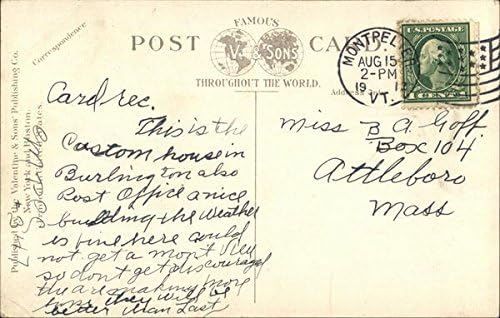 FAMOUS
POST CARD.
V. & SONS
THROUGHOUT THE WORLD.
Correspondence
Address
MONTPEL
AUG 15
2-PM
19
VT.
U.S. POSTAGE
Card rec.
This is the
Custom house in
Burlington also
Post Office a nice
building the Weather
is fine here could
not get a Mont
so dont get discouraged
the are making more
they will be
better than Last
Miss B A. Goff
Box 104
Attleboro
Mass
Published by the Valentine & Sons' Publishing Co.
New York and Boston.